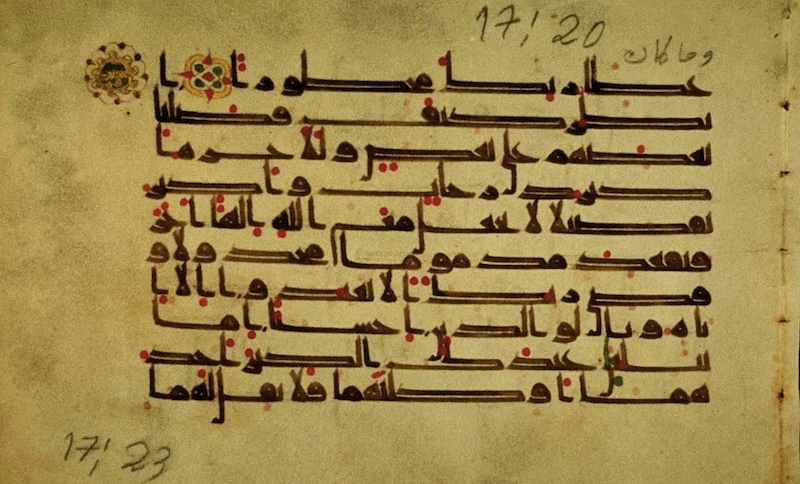 17,' 20
وما كان
عطا ربك محظورا ا
نظر كيف فضلنا
بعضهم على بعض وللاخرة ا
كبر درجت واكبر
تفضيلا لا تجعل مع الله الها اخر
فتقعد مذموما مخذولا و
قضى ربك الا تعبدوا الا ا
ياه وبالولدين احسنا اما
يبلغن عندك الكبر احد
هما او كلهما فلا تقل لهما
17,' 23